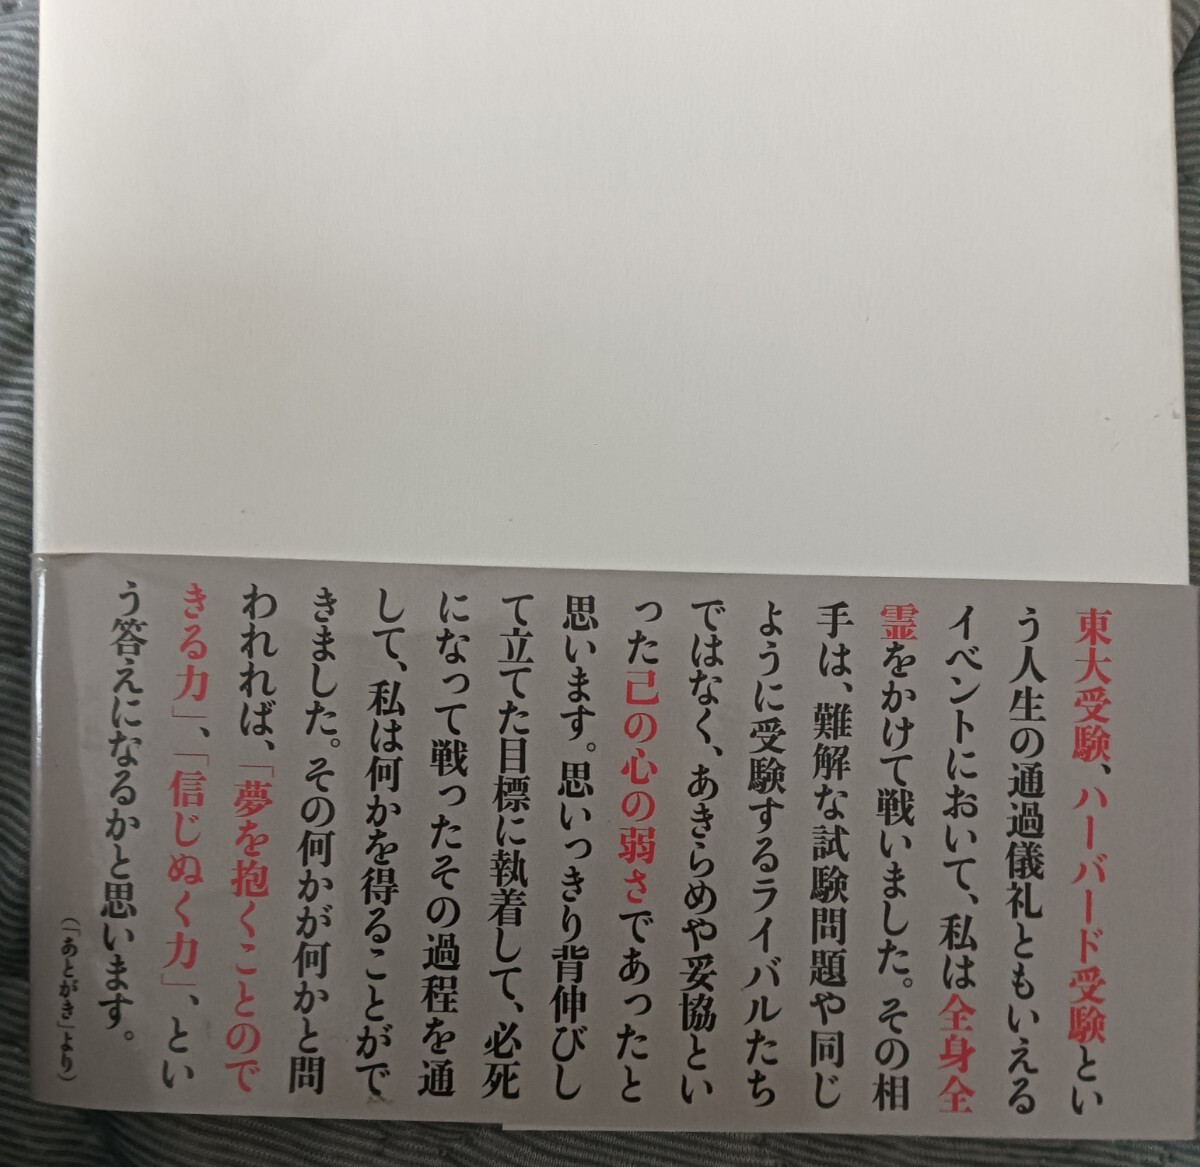 東大受験、ハーバード受験とい
う人生の通過儀礼ともいえる
イベントにおいて、私は全身全
霊をかけて戦いました。その相
手は、難解な試験問題や同じ
ように受験するライバルたち
ではなく、あきらめや妥協とい
った己の心の弱さであったと
思います。思いっきり背伸びし
て立てた目標に執着して、必死
になって戦ったその過程を通
して、私は何かを得ることがで
きました。その何かが何かと問
われれば、「夢を抱くことので
きる力」、「信じぬく力」、とい
う答えになるかと思います。
（「あとがき」より）